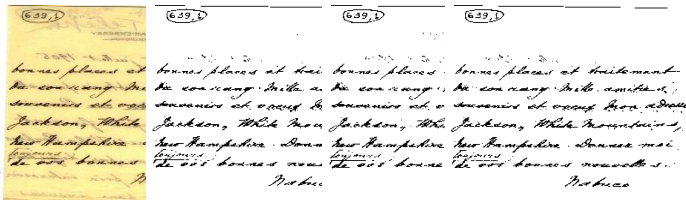 639,1
bonnes places et
du son rang. Mille
souvenirs et
Jackson, White
New Hampshire
toujours
de vos bonnes
639,1
bonnes places et trai
du son rang. Mille a
souvenirs et vœux
Jackson, White Moun
New Hampshire. Donne
toujours
de vos bonnes nouv
Nabuco
639,1
bonnes places et
du son rang. Mille
souvenirs et
Jackson, White
New Hampshire.
toujours
de vos bonne
639,1
bonnes places et traitement
du son rang. Mille amitiés,
souvenirs et vœux Mon adresse
Jackson, White Mountains,
New Hampshire. Donnez moi
toujours
de vos bonnes nouvelles.
Nabuco